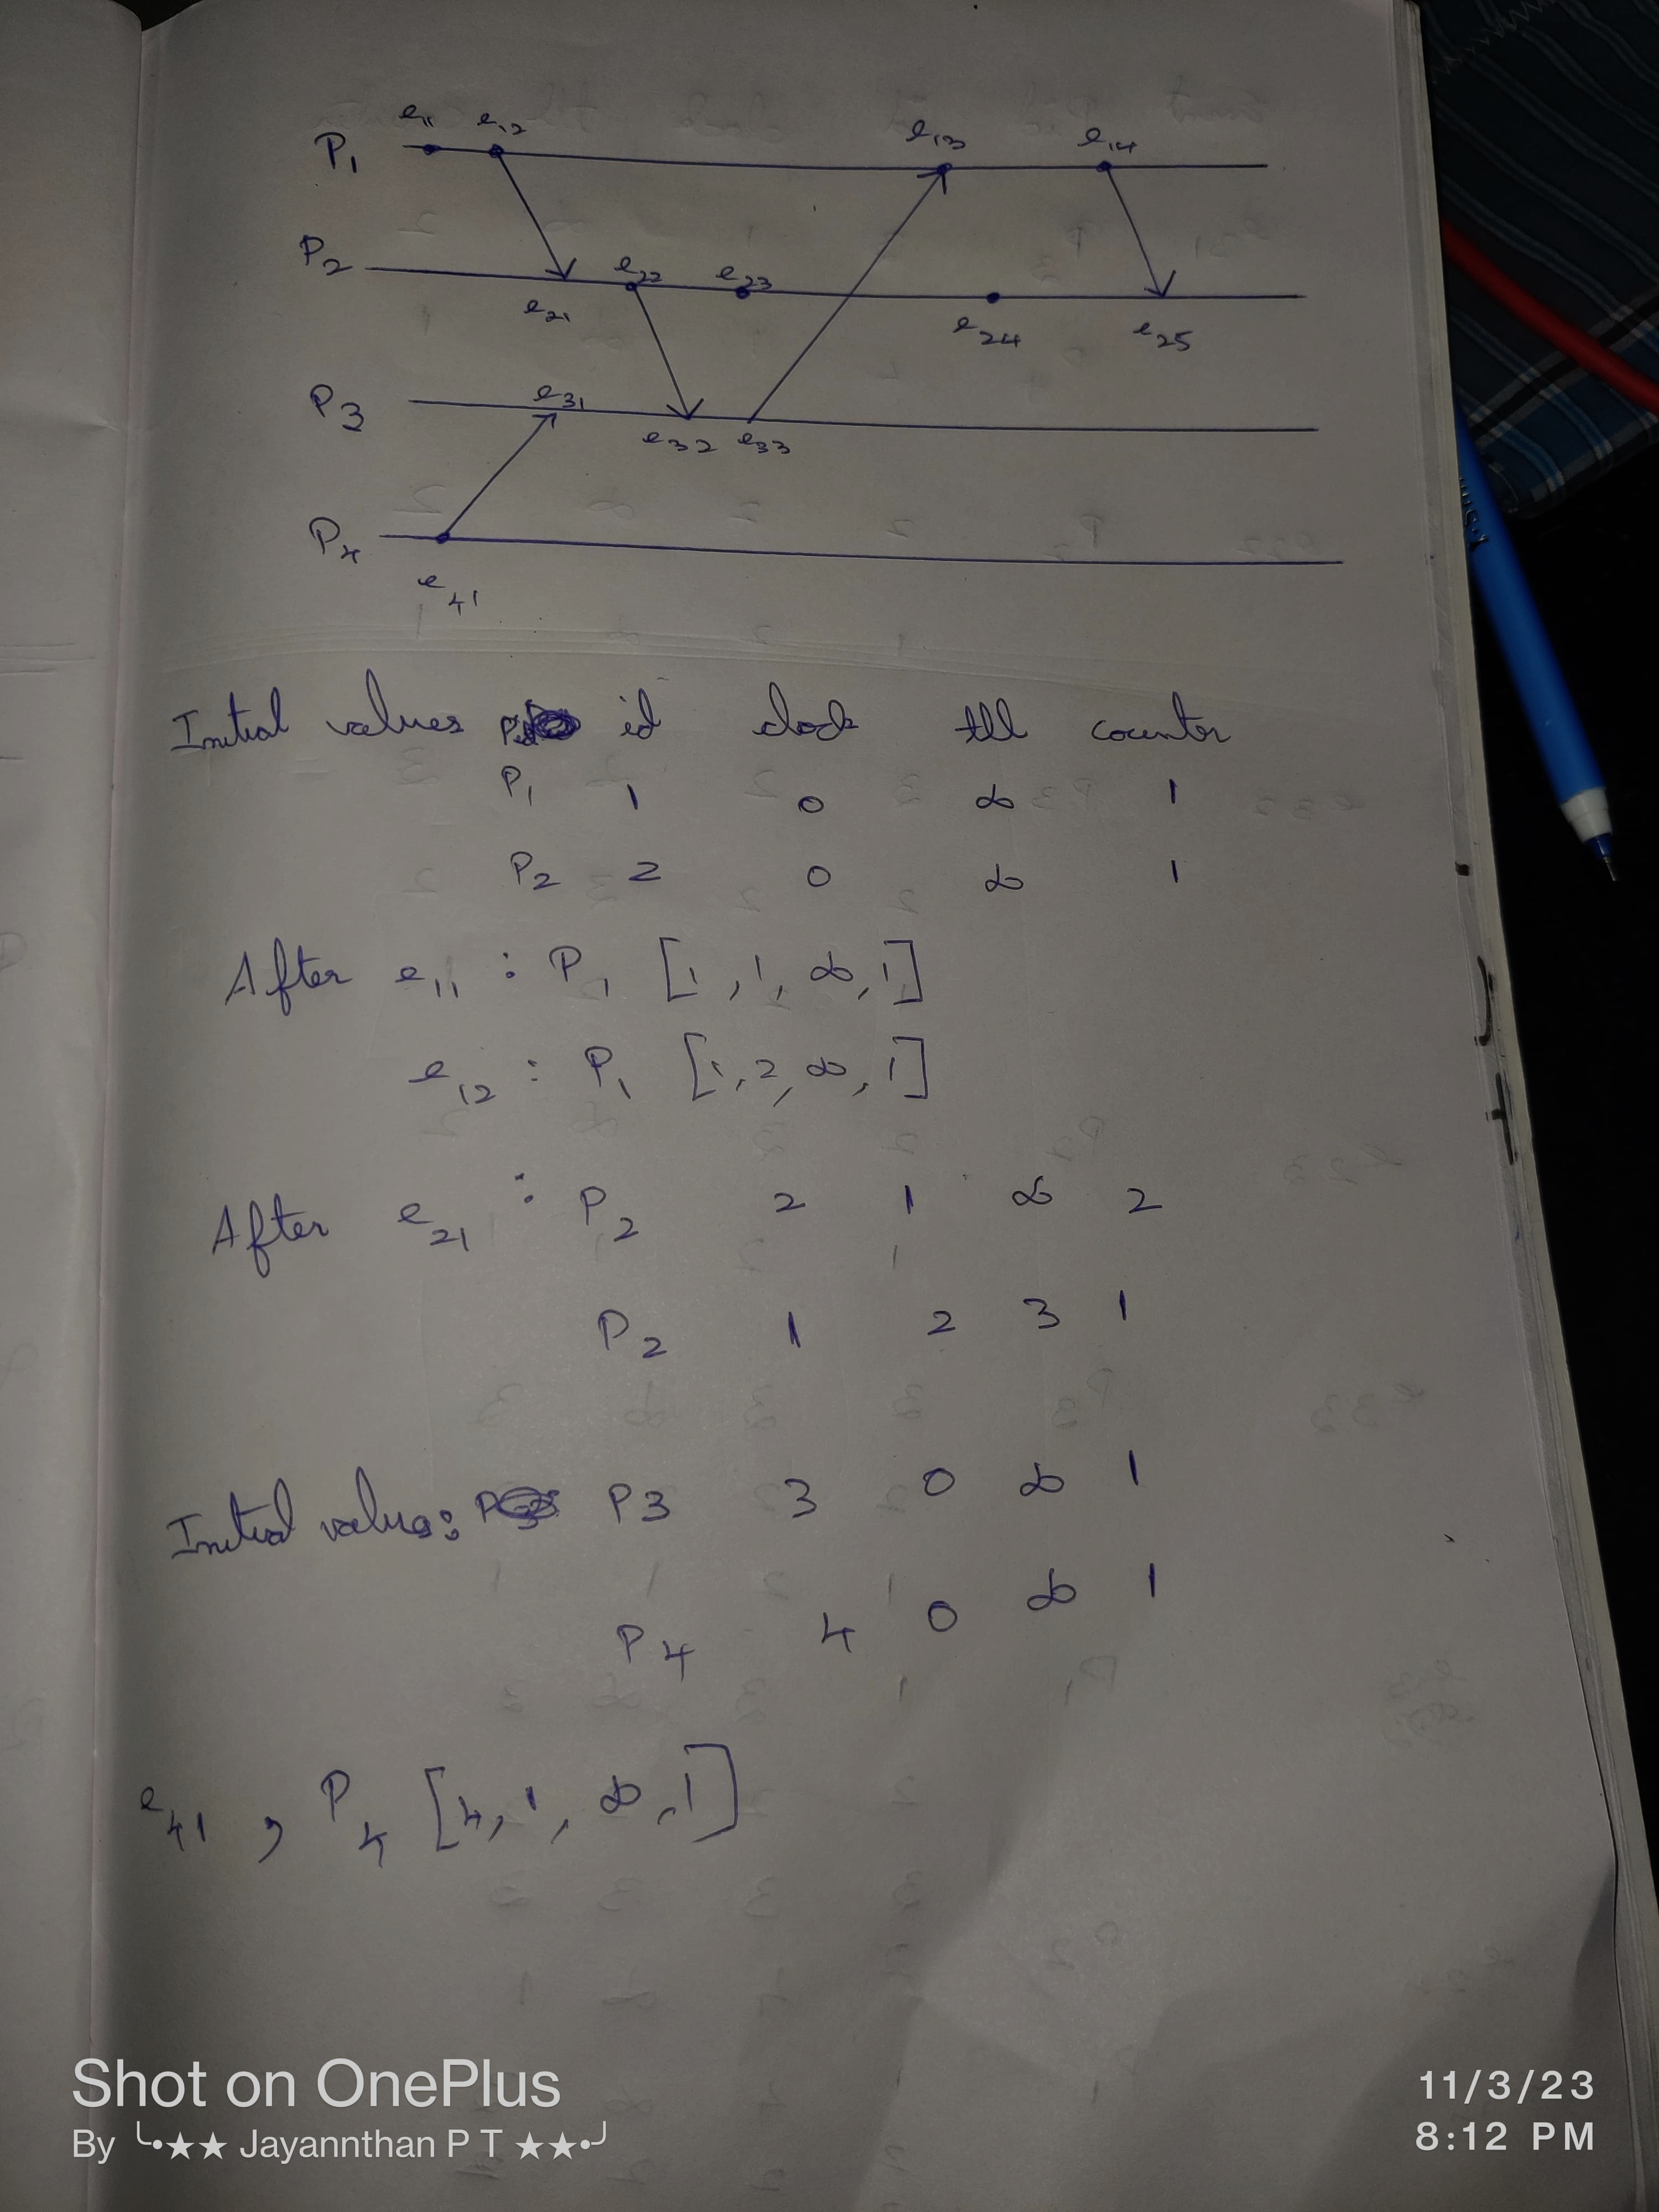 e11 e12 e13 e14
P1
P2 e22 e23
e21 e24 e25
P3 e31
e32 e33
P4
e41
Initial values id clock ttl counter
P1 1 0 ∞ 1
P2 2 0 ∞ 1
After e11 : P1 [1, 1, ∞, 1]
e12 : P1 [1, 2, ∞, 1]
After e21 : P2 2 1 ∞ 2
P2 1 2 3 1
Initial values: P3 3 0 ∞ 1
P4 4 0 ∞ 1
e41 , P4 [4, 1, ∞, 1]
Shot on OnePlus
By ╰•★★ Jayannthan P T ★★•╯
11/3/23
8:12 PM